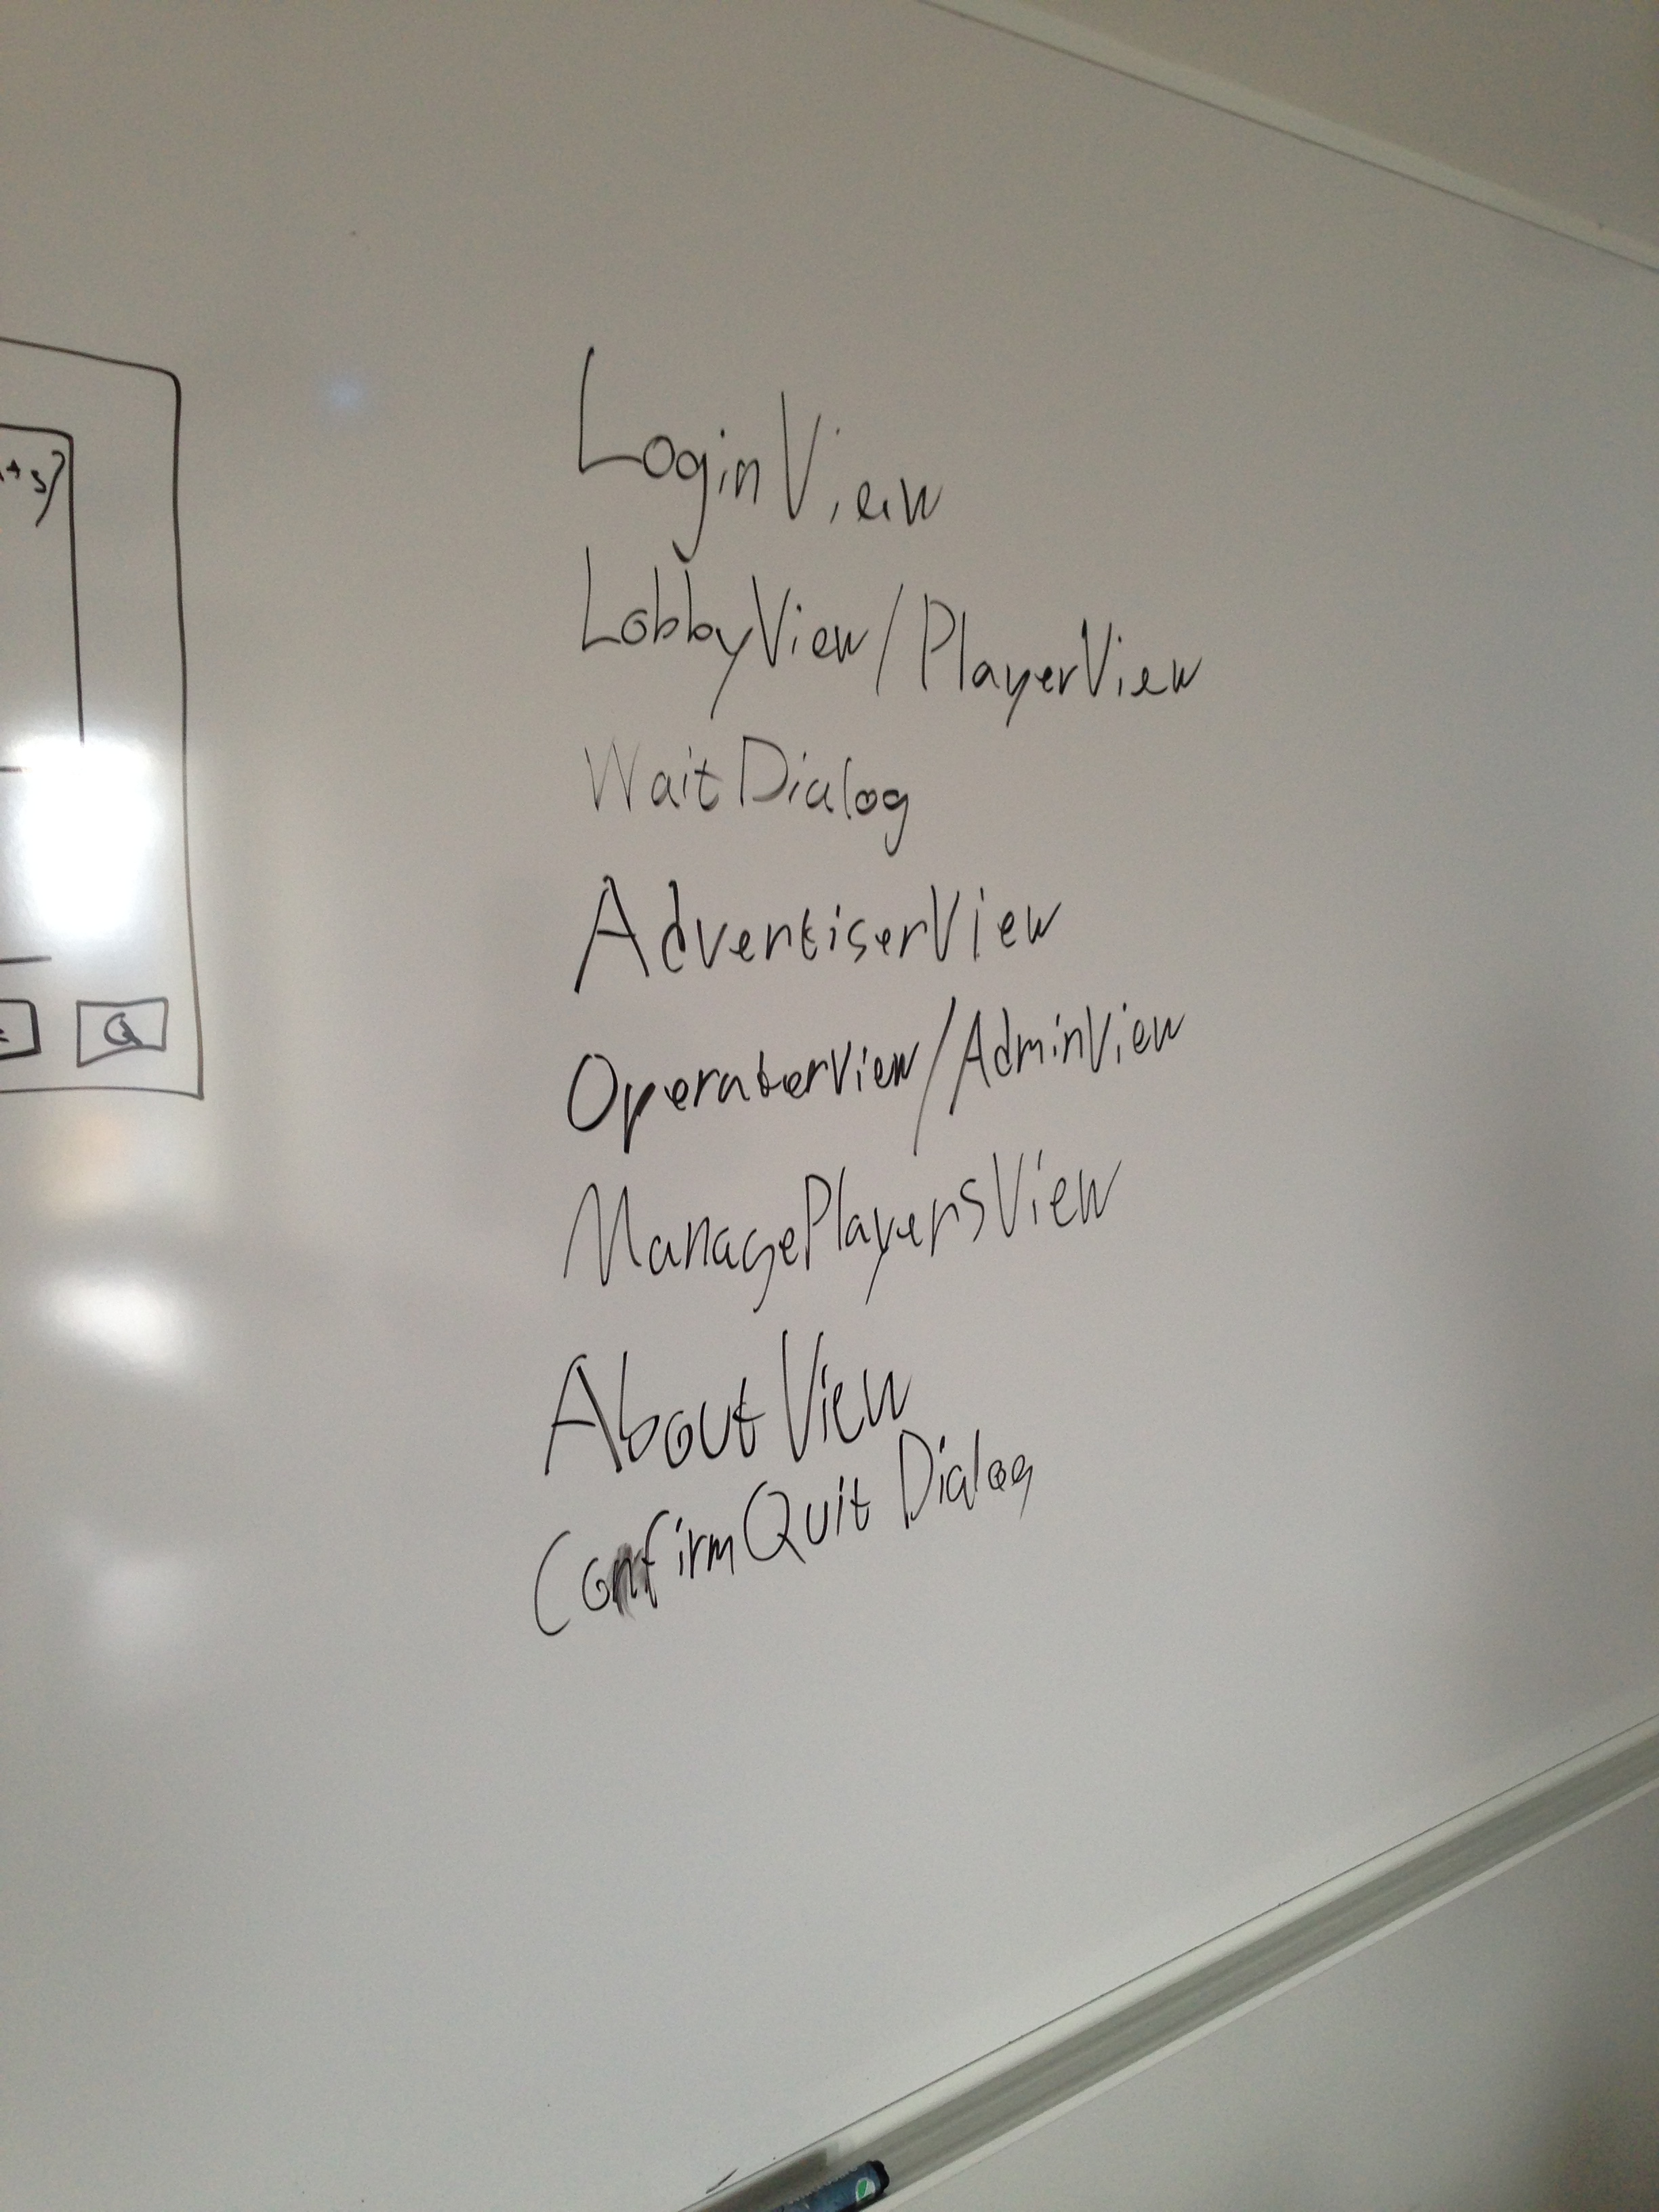 LoginView
LobbyView/PlayerView
WaitDialog
AdvertiserView
OperaterView/AdminView
ManagePlayersView
AboutView
ConfirmQuitDialog
Q